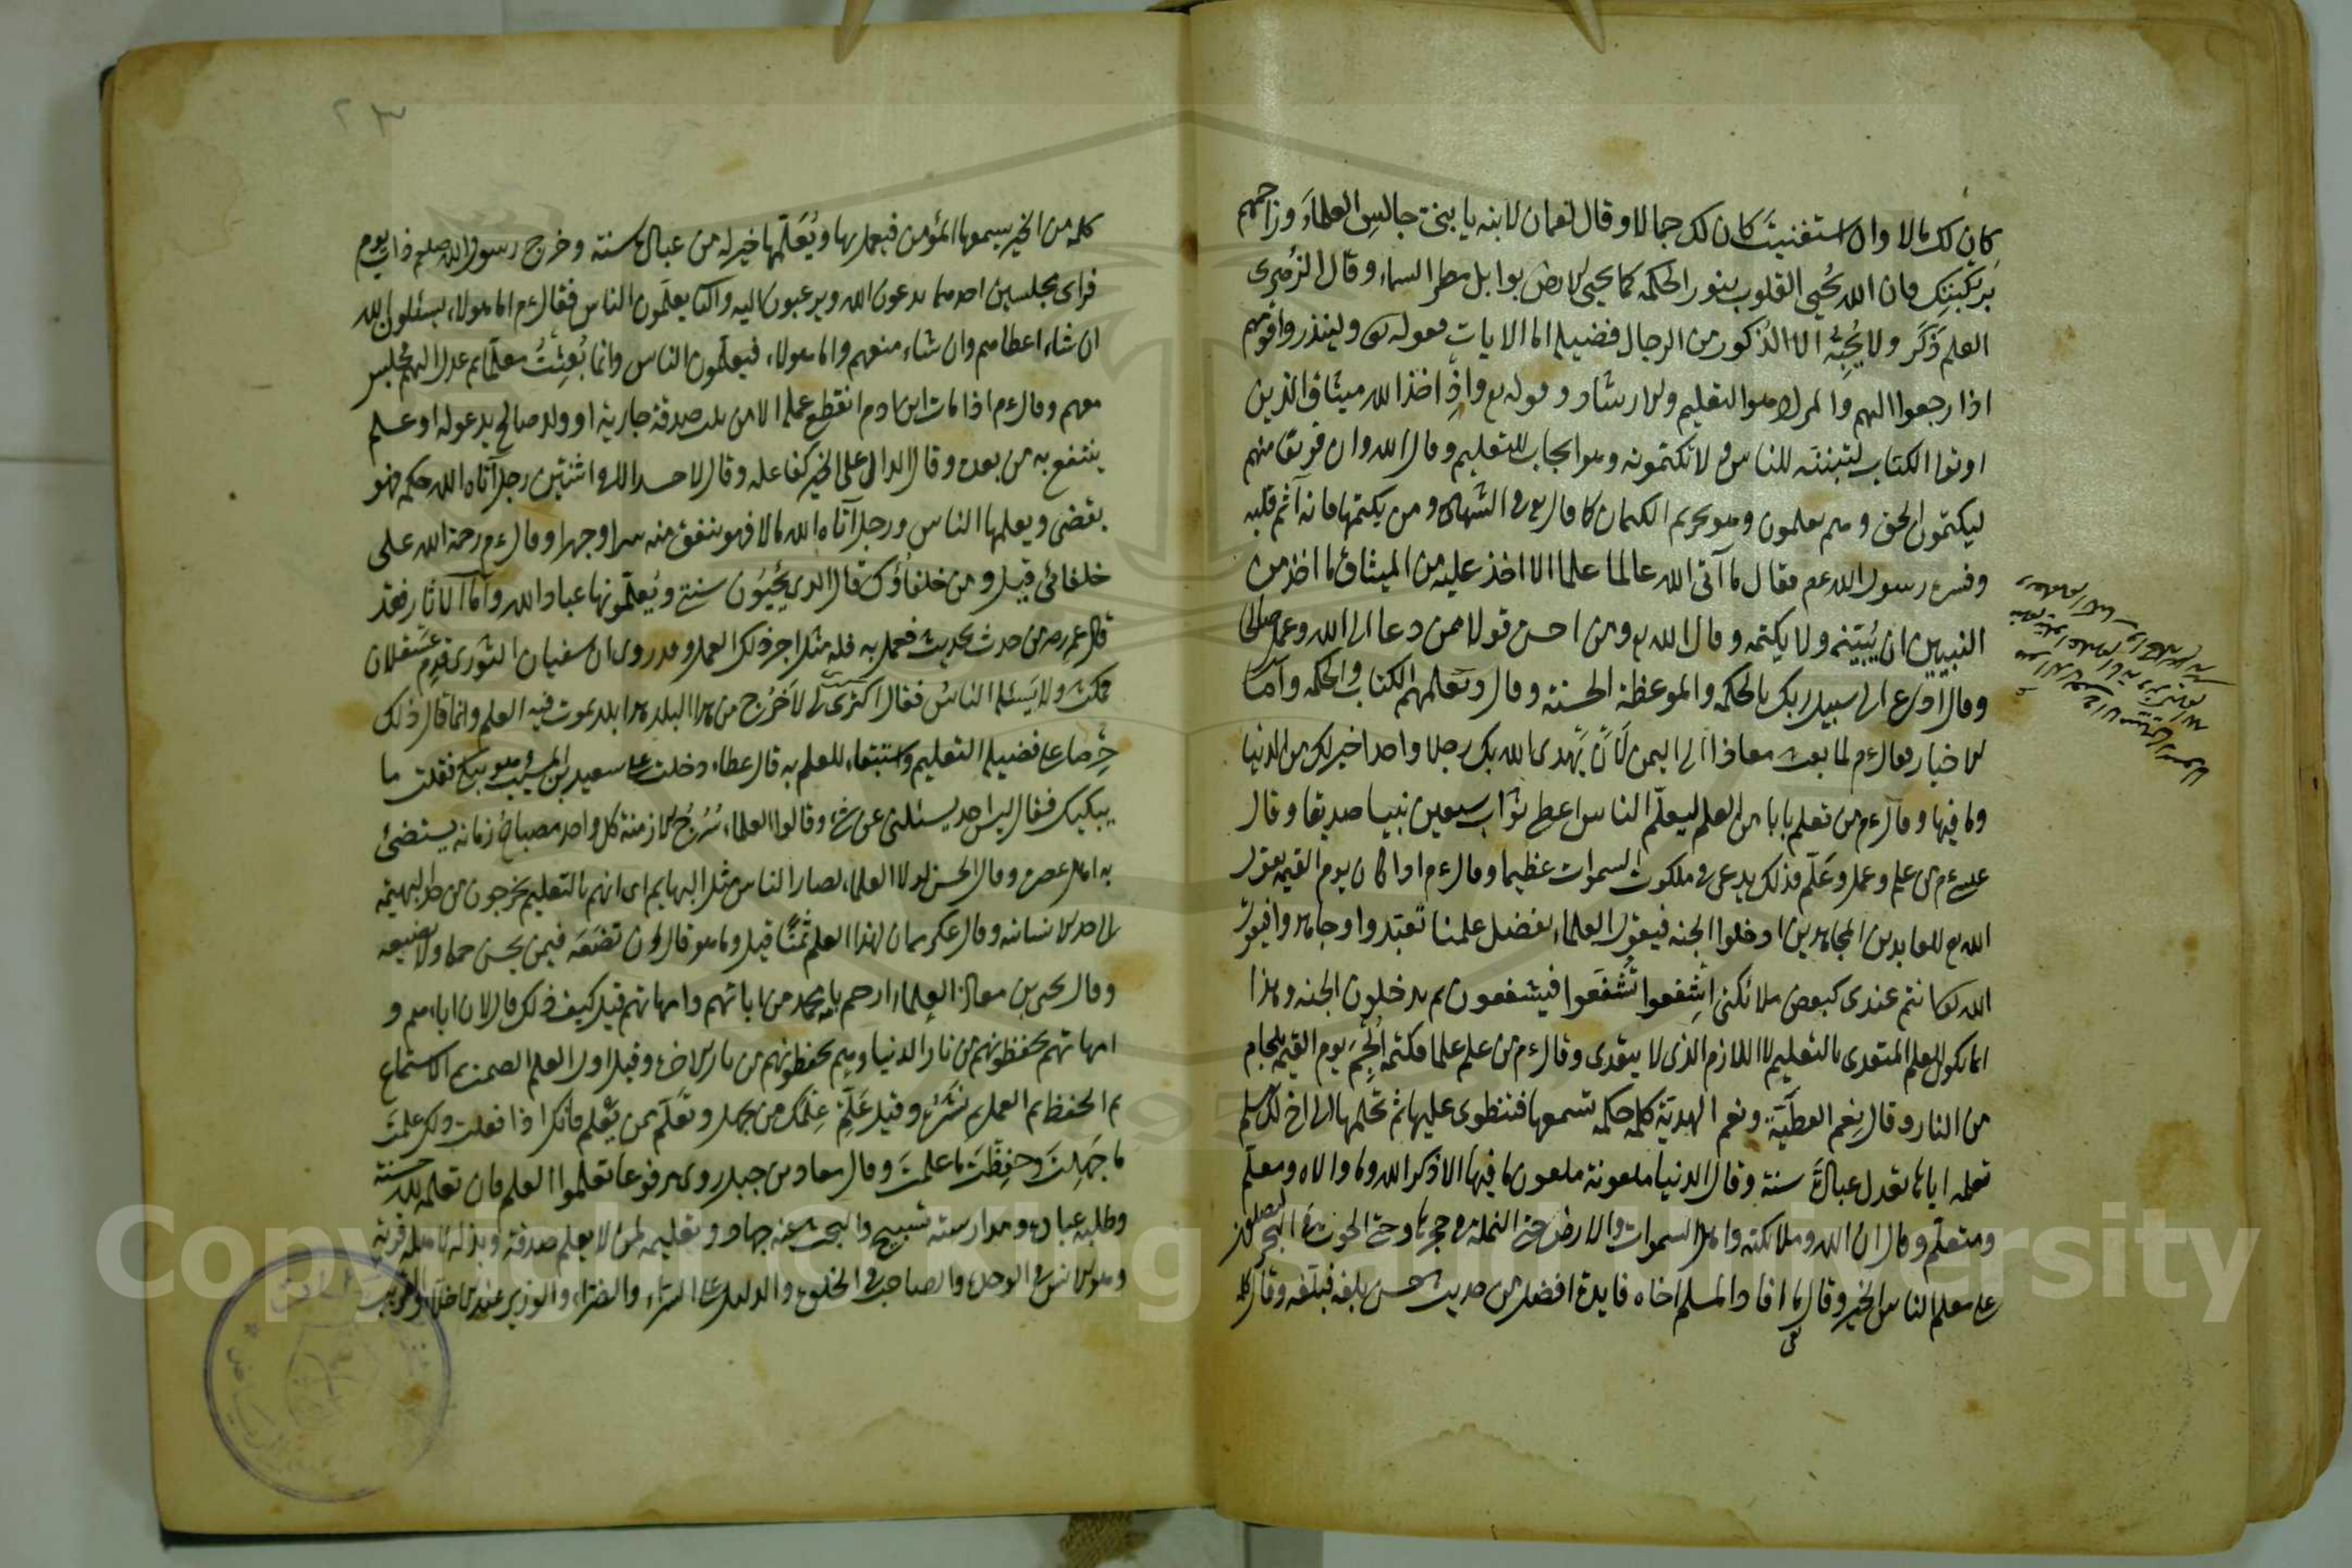 كان لك مالا وان استغنيت كان لك جمالا وقال لقمان لابنه يا بني جالس العلماء وزاحمهم
بركبتيك فان الله يحيى القلوب بنور الحكمه كما يحيى الارض بوابل مطر السماء وقال الزهرى
العلم ذكر ولا يحبه الا الذكور من الرجال فضيله اما الايات فقوله تعالى ولينذروا قومهم
اذا رجعوا اليهم والمراد هو التعليم والارشاد وقوله تع واذ اخذ الله ميثاق الذين
اوتوا الكتاب لتبيننه للناس ولا تكتمونه وهو ايجاب للتعليم وقال الله وان فريقا منهم
ليكتمون الحق وهم يعلمون وهو تحريم الكتمان كما قال تع فى الشهادة ومن يكتمها فانه آثم قلبه
رسول الله عم فقال ما آتى الله عالما علما الا اخذ عليه من الميثاق ما اخذ من
النبيين ان يبينه ولا يكتمه وقال الله تع ومن احسن قولا ممن دعا الى الله وعمل صالحا
وقال ادع الى سبيل ربك بالحكمه والموعظة الحسنة وقال ويعلمهم الكتاب والحكمه واما
الاخبار فقال ءم لما بعث معاذا الى اليمن لان يهدى الله بك رجلا واحدا خير لك من الدنيا
وما فيها وقال ءم من تعلم بابا من العلم ليعلم الناس اعطى ثواب سبعين نبيا صديقا وقال
عيسى ءم من علم وعمل وعلم فذلك يدعى فى ملكوت السموات عظيما وقال ءم اذا كان يوم القيمه يقول
الله تع للعابدين المجاهدين ادخلوا الجنه فيقول العلماء بفضل علمنا تعبدوا وجاهدوا فيقول
الله تع انتم عندى كبعض ملائكتى اشفعوا تشفعوا فيشفعون ثم يدخلون الجنه وهذا
انما يكون للعلم المتعدى بالتعليم لا اللازم الذى لا يتعدى وقال ءم من علم علما فكتمه الجم يوم القيمه بلجام
من النار وقال نعم العطية ونعم الهدية كلمه حكمه تسمعها فتنطوى عليها ثم تحملها الى اخ لك مسلم
تعلمه اياها تعدل عبادة سنة وقال الدنيا ملعونة ملعون ما فيها الا ذكر الله وما والاه ومعلم
ومتعلم وقال ان الله وملائكته واهل السموات والارض حتى النملة فى جحرها وحتى الحوت فى البحر ليصلون
على معلم الناس الخير وقال ما افاد المسلم اخاه فايدة افضل من حديث حسن بلغه فبلغه وقال
كلمه من الخير يسمعها المؤمن فيعمل بها ويعلمها خير له من عبادة سنة وخرج رسول الله صلعم ذات يوم
فراى مجلسين احدهما يدعون الله ويرغبون اليه والثانى يعلمون الناس فقال ءم اما هولاء يسئلون الله
ان شاء اعطاهم وان شاء منعهم واما هولاء فيعلمون الناس وانما بعثت معلما ثم عدل اليهم مجلس
معهم وقال ءم اذا مات ابن ادم انقطع عمله الا من ثلث صدقة جارية او ولد صالح يدعو له او علم
ينتفع به من بعده وقال الدال على الخير كفاعله وقال لا حسد الا فى اثنتين رجل آتاه الله حكمه فهو
يقضى ويعلمها الناس ورجل آتاه الله مالا فهو ينفق منه سرا وجهرا وقال ءم رحمة الله على
خلفائى قيل ومن خلفاؤك قال الذى يحيون سنتى ويعلمونها عباد الله واما الآثار فقد
قال عمر رضه من حدث بحديث فعمل به فله مثل اجر ذلك العمل وقد روى ان سفيان الثورى قدم عسقلان
فمكث ولا يسئله الناس فقال اكثرى لى لاخرج من هذا البلد هذا بلد يموت فيه العلم وانما قال ذلك
حرصا على فضيله التعليم واستبقاء للعلم به قال عطاء دخلت على سعيد بن المسيب وهو يبكى فقلت ما
يبكيك فقال ليس احد يسئلنى عن شئ وقالوا العلماء سرج الازمنة كل واحد مصباح زمانه يستضئ
به اهل عصره وقال الحسن لولا العلماء لصار الناس مثل البهايم اى انهم بالتعليم يخرجون من حد البهيمه
الى حد الانسانيه وقال عكرمه ان لهذا العلم ثمنا قيل وما هو قال ان تضعه فيمن يحسن حمله ولا يضيعه
وقال يحيى بن معاذ العلماء ارحم بامة محمد من ابائهم وامهاتهم قيل كيف ذلك قال لان اباءهم و
امهاتهم يحفظونهم من نار الدنيا وهم يحفظونهم من نار الاخرة وقيل اول العلم الصمت ثم الاستماع
ثم الحفظ ثم العمل ثم نشره وقيل علم علمك من يجهل وتعلم ممن يعلم فانك اذا فعلت ذلك علمت
ما جهلت وحفظت ما علمت وقال معاذ بن جبل روى مرفوعا تعلموا العلم فان تعلمه لله حسنة
وطلبه عبادة ومدارسته تسبيح والبحث عنه جهاد وتعليمه لمن لا يعلم صدقة وبذله لاهله قربة
وهو الانس فى الوحدة والصاحب فى الخلوة والدليل على السراء والضراء والوزير عند الاخلاء والقريب
Copyright © King Saud University